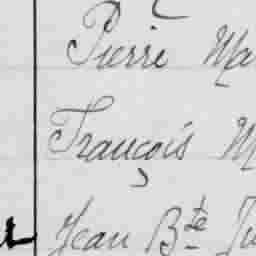 Pierre Ma
François M
Jean Bte Ju